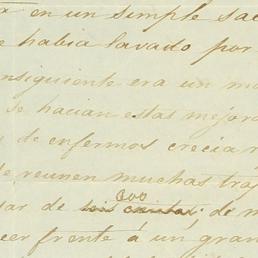 en un simple sac
habia lavado por
nsiguiente era un mo
se hacian estas mejora
de enfermos crecia
reunen muchas tra
600
ar de seis cientas; de m
cer frente á un gran